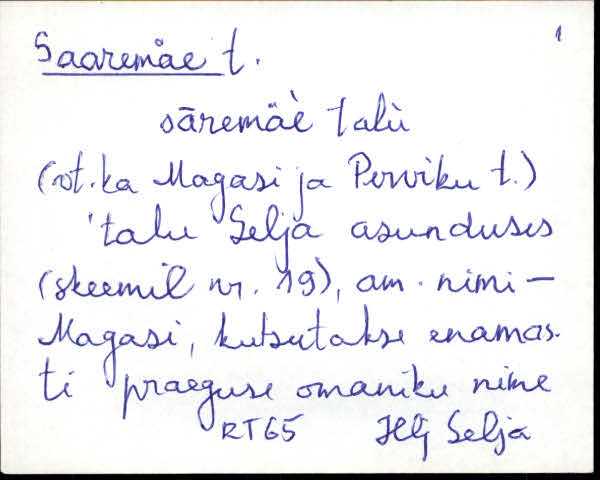 1
Saaremäe t.
sāremäè talù
(vt. ka Magasi ja Perviku t.)
'talu Selja asunduses
(skeemil nr. 19), am. nimi –
Magasi, kutsutakse enamas-
ti praeguse omaniku nime
RT65 Hlj Selja